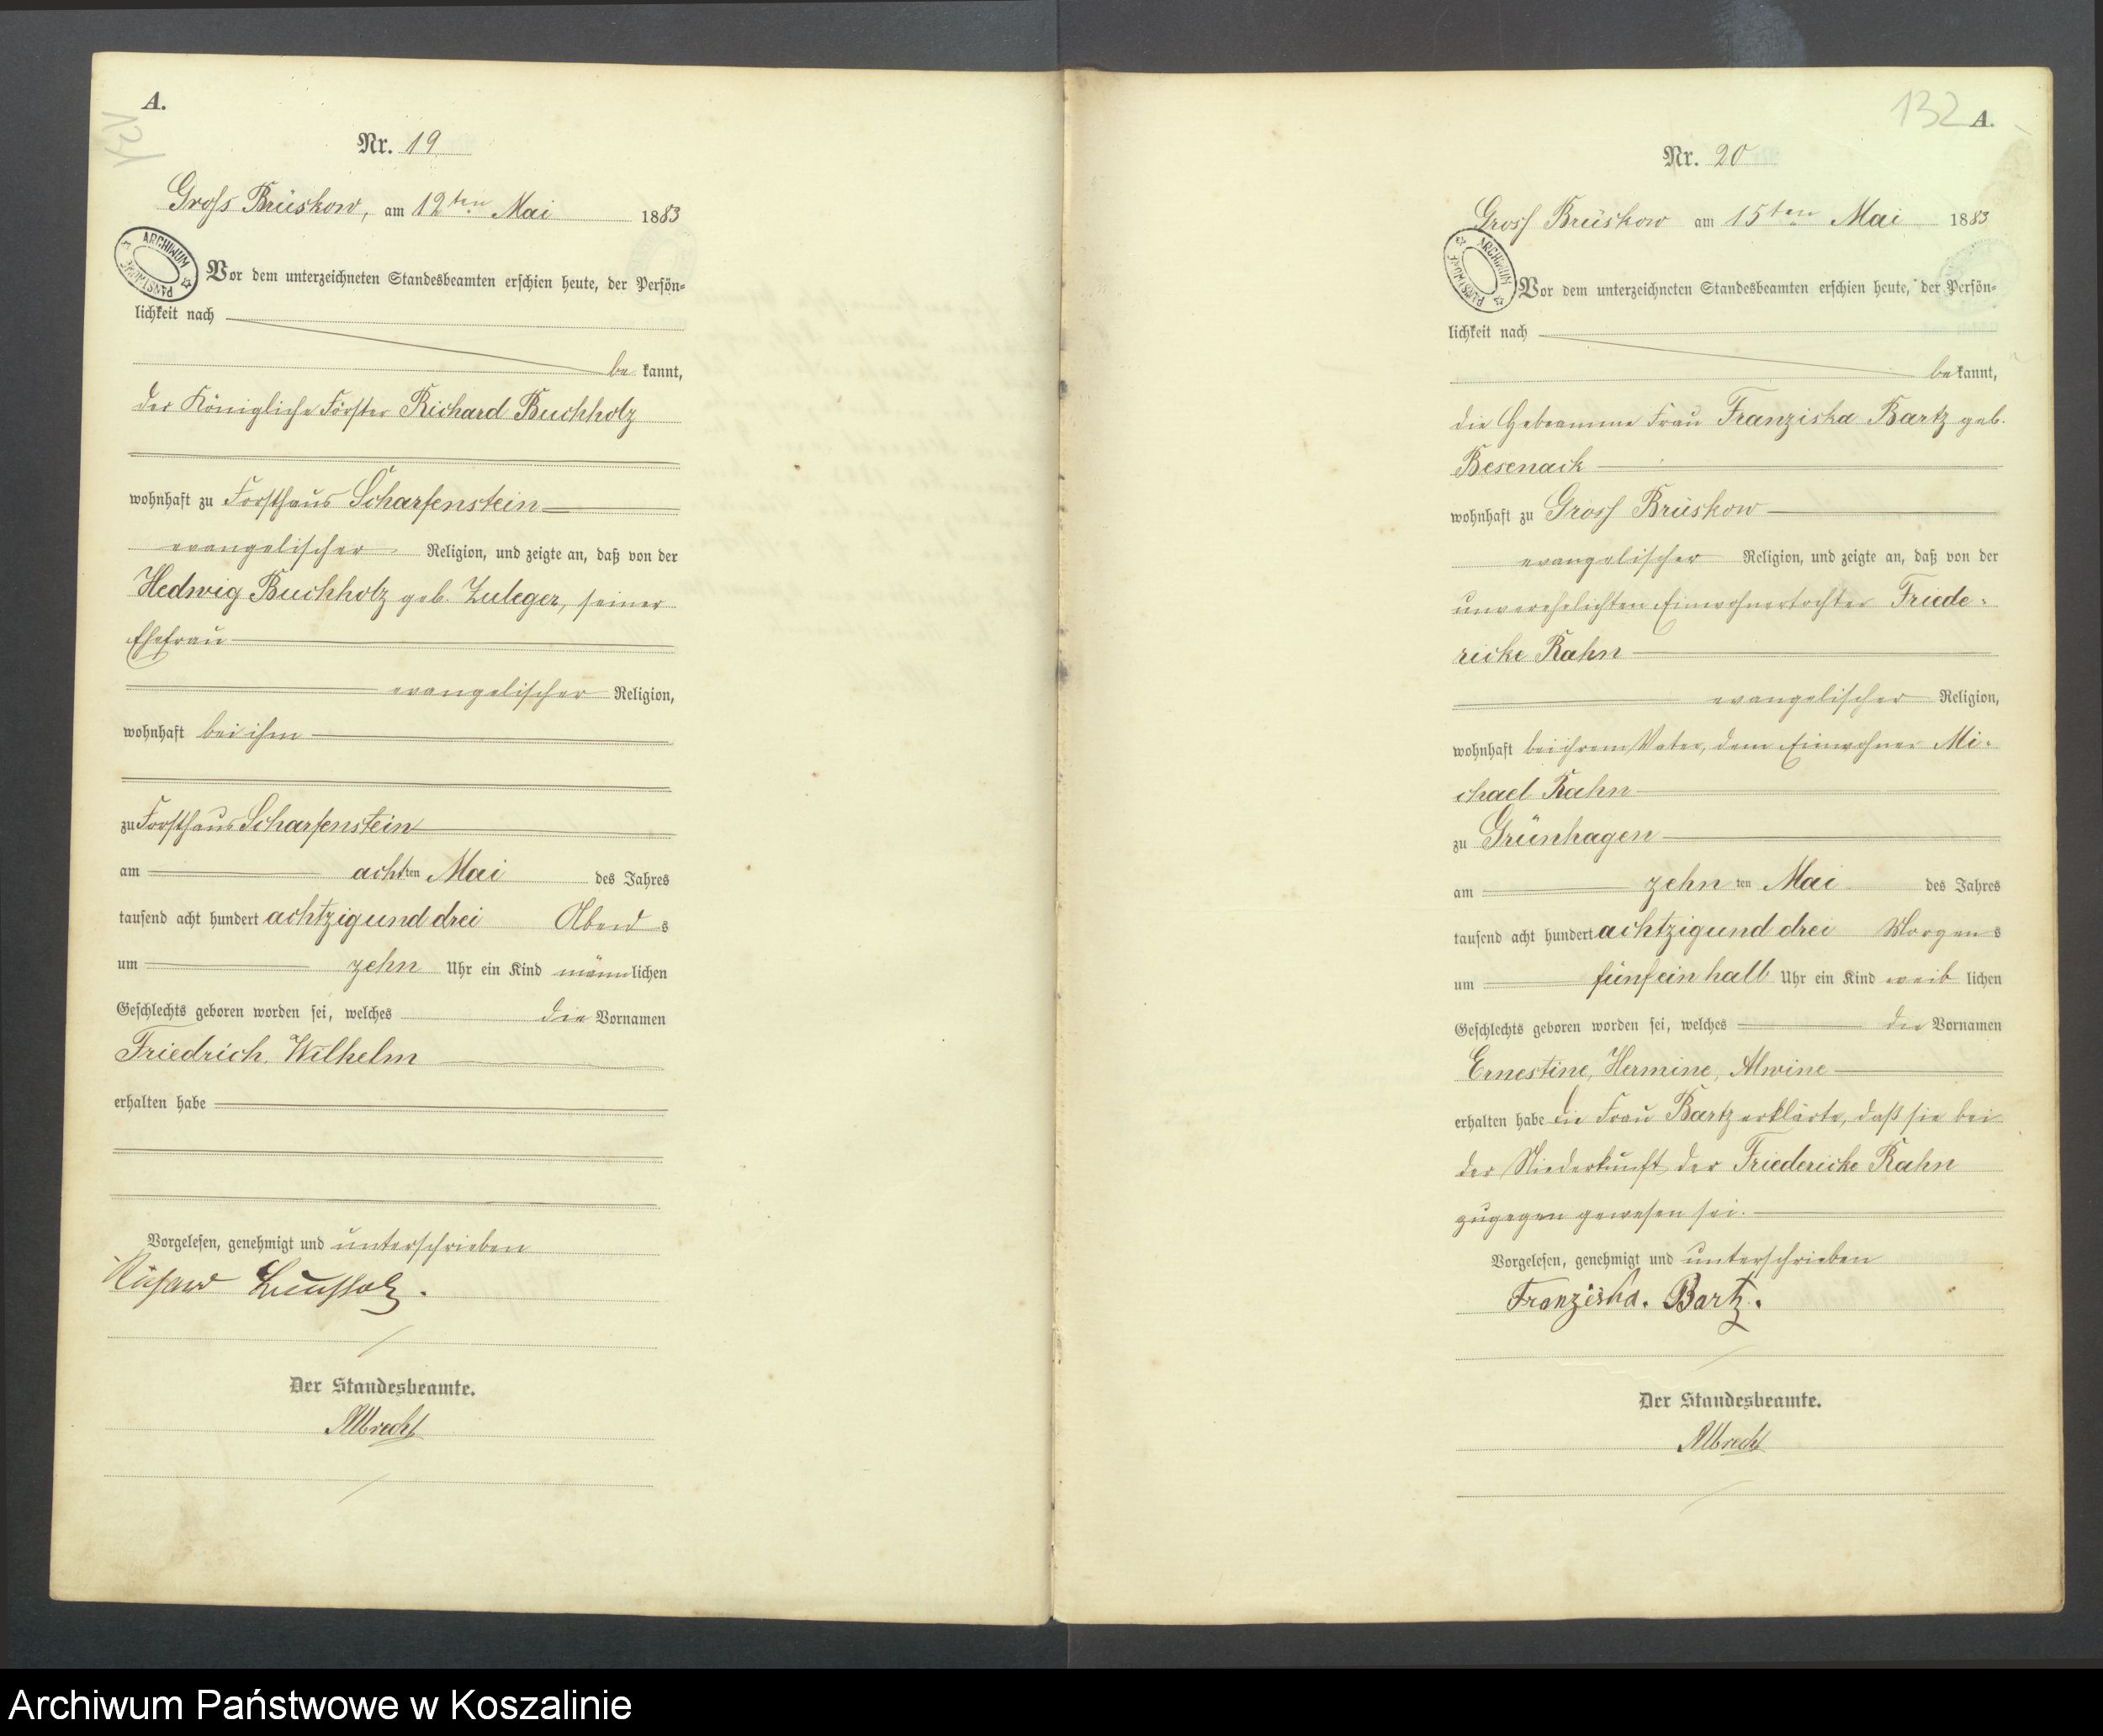 A.
131
Nr. 19
Gross Brüskow, am 12ten Mai 1883
ARCHIWUM PAŃSTWOWE
Vor dem unterzeichneten Standesbeamten erschien heute, der Persön-
lichkeit nach
be kannt,
der Königliche Förster Richard Buchholz
wohnhaft zu Forsthaus Scharfenstein
evangelischer Religion, und zeigte an, daß von der
Hedwig Buchholz geb. Zuleger, seiner
Ehefrau
evangelischer Religion,
wohnhaft bei ihm
zu Forsthaus Scharfenstein
am achtten Mai des Jahres
tausend acht hundert achtzig und drei Abend s
um zehn Uhr ein Kind männlichen
Geschlechts geboren worden sei, welches die Vornamen
Friedrich, Wilhelm
erhalten habe
Vorgelesen, genehmigt und unterschrieben
Richard Buchholz.
Der Standesbeamte.
Albrecht
132 A.
Nr. 20
Gross Brüskow am 15ten Mai 1883
ARCHIWUM PAŃSTWOWE
Vor dem unterzeichneten Standesbeamten erschien heute, der Persön-
lichkeit nach
be kannt,
die Hebeamme Frau Franziska Bartz geb.
Besenack
wohnhaft zu Gross Brüskow
evangelischer Religion, und zeigte an, daß von der
unverehelichten Einwohnertochter Friede-
ricke Rahn
evangelischer Religion,
wohnhaft bei ihrem Vater, dem Einwohner Mi-
chael Rahn
zu Grünhagen
am zehn ten Mai des Jahres
tausend acht hundert achtzig und drei Morgen s
um fünf ein halb Uhr ein Kind weib lichen
Geschlechts geboren worden sei, welches die Vornamen
Ernestine, Hermine, Alwine
erhalten habe die Frau Bartz erklärte, daß sie bei
der Niederkunft der Friedericke Rahn
zugegen gewesen sei.
Vorgelesen, genehmigt und unterschrieben
Franziska. Bartz.
Der Standesbeamte.
Albrecht
Archiwum Państwowe w Koszalinie